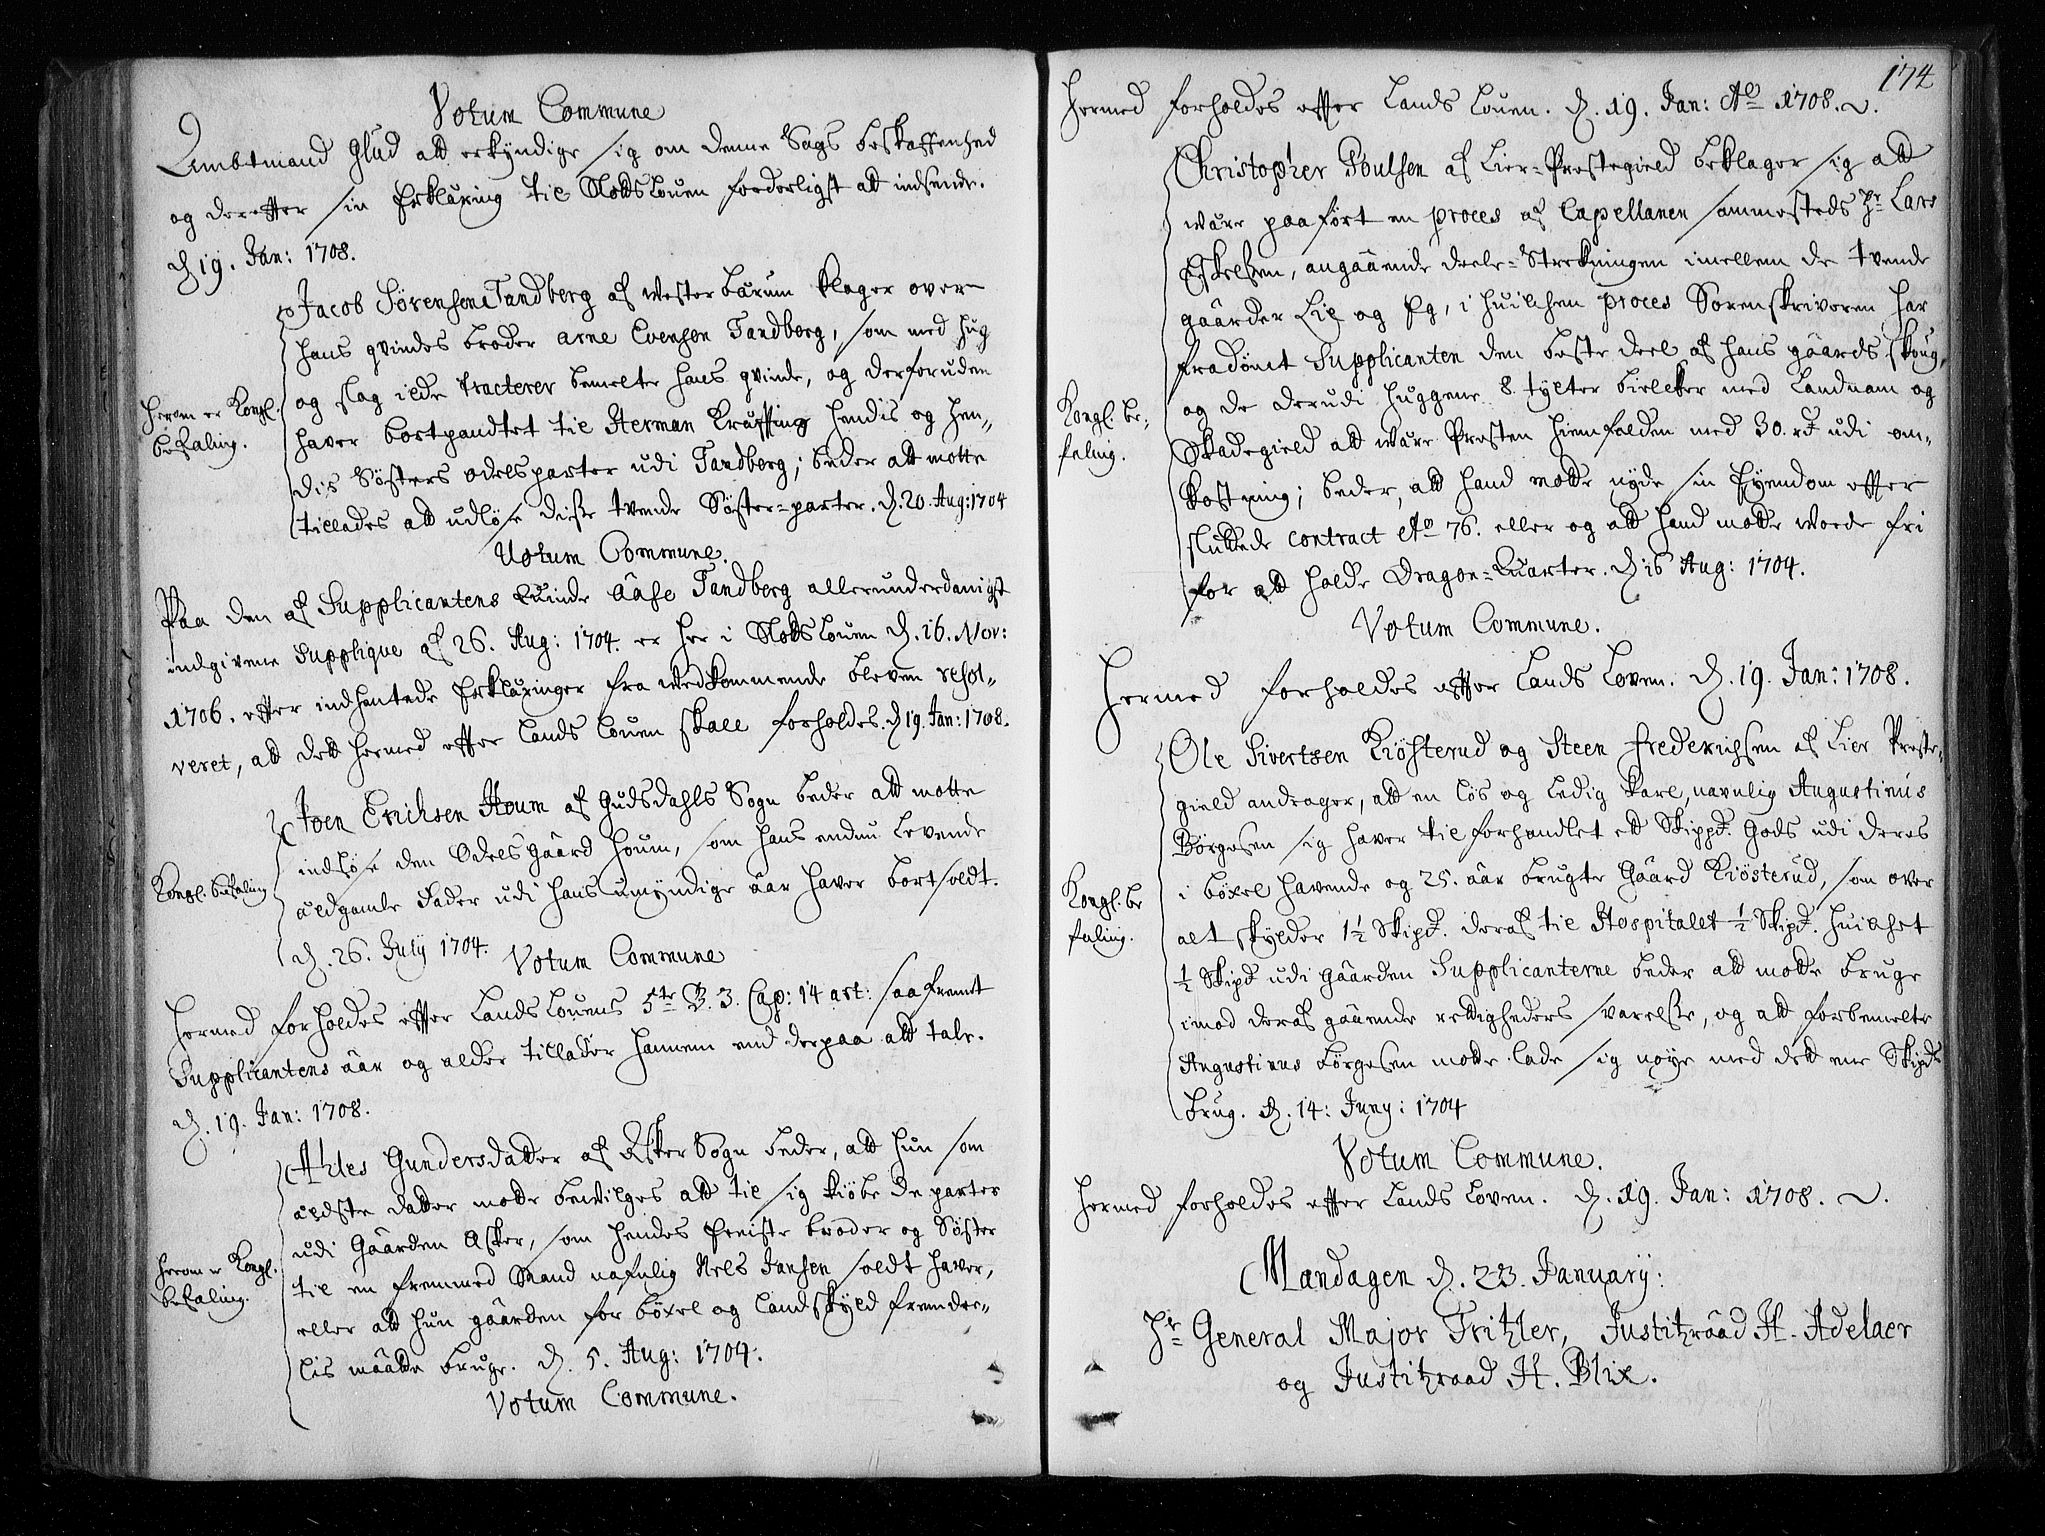 Votum Commune
Ambtmand Glud att erkyndige sig om denne Sags beskaffenhed
og derefter sin Erklæring til Slodtslouen forderligst att indsende.
d. 19. Jan: 1708.
Jacob Sørensen Tandberg af Wester Bærum klager over
hans qvindes broder Arne Evensen Tandberg, som med hug
og slag ilde tracterer bemelte hans qvinde, og derforuden
Herom er Kongl.
befaling.
haver bortpandtet til Herman hendis og hen„
dis Søsters odelsparter udi Tandberg; beder att motte
tillades att udløse disse tvende Søster-parter. d. 20. Aug: 1704
Votum Commune.
Paa den af Supplicantens Quinde Aase Tandberg allerunderdanigst
indgivene Supplique af 26. Aug: 1704. er her i Slodtslouen d. 16. Nov:
1706. efter indhentede Erklæringer fra vedkommende bleven resol„
veret, att dett hermed efter Lands Louen skall forholdes. d. 19. Jan: 1708.
Joen Erichsen Houm af Gudsdahls Sogn beder att motte
indløse den Odelsgaard Houm, som hans endnu levende
Kongl. befaling
ældgamle Fader udi hans umyndige aar haver bortsoldt.
d. 26. July 1704.
Votum Commune
Hermed forholdes efter Lands Louens 5te B. 3. Cap: 14 art: saafremt
Supplicantens aar og alder tillader hannem end derpaa att tale.
d. 19. Jan: 1708.
Ahles Gundersdatter af Asker Sogn beder, att hun som
ældste datter motte bevilges att til sig kiøbe de parter
udi Gaarden Asker, som hendes broder og Søster
Herom er Kongl.
befaling.
til en fremmed Mand nafnlig Nels Jansen soldt haver,
eller att hun gaarden for bøxel og landskyld fremde„
lis maatte bruge. d. 5. Aug: 1704.
Votum Commune.
174
Hermed forholdes efter Lands Louen. d. 19. Jan: Ao 1708.
Christopher Poulsen af Lier-Prestegield beklager sig att
være paaført en proces af Capellanen sammesteds Hr Lars
Eskelsen, angaaende deele-Strekningen imellem de tvende
gaarder Lie og Eg, i huilchen proces Sorenskriveren har
fradømt Supplicanten den beste deel af hans gaards skoug,
Kongl. be„
faling.
og de derudi huggene 8 tylter bielcker med Landnam og
Skadegield att være Presten hiemfalden med 30. rd udi om„
kostning; beder, att hand motte nyde sin Eyendom efter
sluttede contract Ao 76. eller og att hand motte worde fri
for att holde Dragon-Quarter. d. 16 Aug: 1704.
Votum Commune.
Hermed forholdes efter Lands Loven. d. 19. Jan: 1708.
Ole Sivertsen Kiøsterud og Steen Frederichsen af Lier Preste„
gield andrager, att en løs og ledig karl, navnlig Augustinus
Børgesen sig haver tilforhandlet ett Skippd. Gods udi deres
i bøxel havende og 25. aar brugte Gaard Kiøsterud, som over
Kongl. be
faling.
alt skylder 1½ Skipd. deraf til Hospitalet ½ Skipd. huilchet
½ Skipd udi gaarden Supplicanterne beder att motte bruge
imod deraf gaaende rettigheders svarelse, og att forbemelte
Augustinus Børgesen motte lade sig nøye med dett ene Skipds
brug. d. 14: Juny: 1704
Votum Commune.
Hermed forholdes efter Lands Loven. d. 19. Jan: 1708.
Mandagen d. 23. January:
Hr General Major Tritzler, Justitzraad H. Adelaer
og Justitzraad H. Blix.